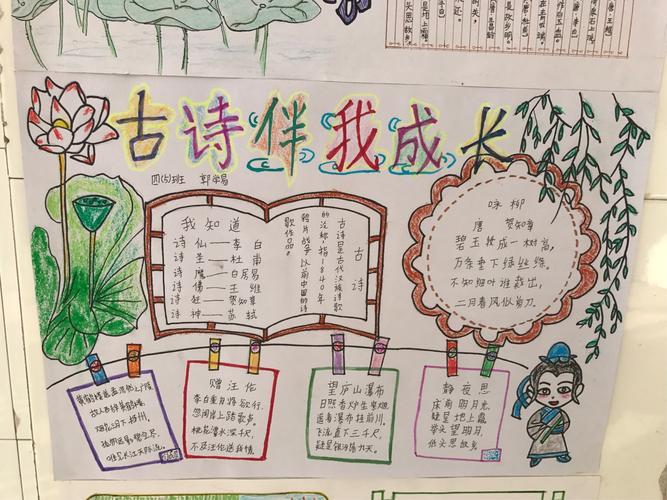 古诗伴我成长
四(5)班 郭学易
我知道
诗仙——李白
诗圣——杜甫
诗魔——白居易
诗佛——王维
诗狂——贺知章
诗神——苏轼
古诗
古诗是古代汉族诗歌
的泛称，指1840年
鸦片战争以前中国的诗
歌作品。
咏柳
唐 贺知章
碧玉妆成一树高，
万条垂下绿丝绦。
不知细叶谁裁出，
二月春风似剪刀。
故人西辞黄鹤楼，
烟花三月下扬州。
孤帆远影碧空尽，
唯见长江天际流。
赠汪伦
李白乘舟将欲行，
忽闻岸上踏歌声。
桃花潭水深千尺，
不及汪伦送我情。
望庐山瀑布
日照香炉生紫烟，
遥看瀑布挂前川。
飞流直下三千尺，
疑是银河落九天。
静夜思
床前明月光，
疑是地上霜。
举头望明月，
低头思故乡。